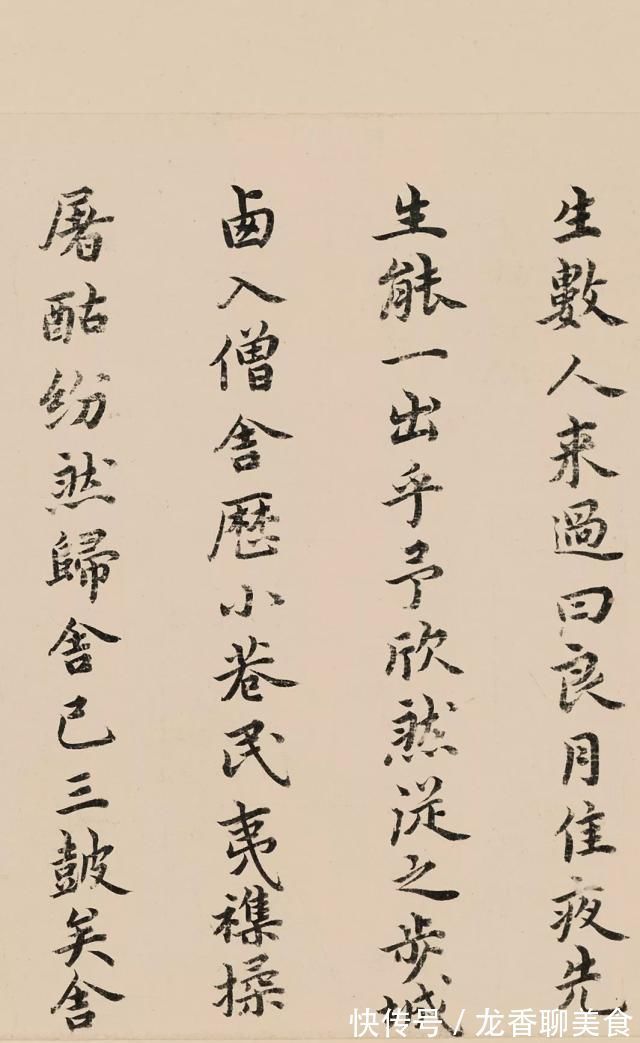 生數人来過曰良月佳夜先
生能一出乎予欣然從之步城
卥入僧舍歷小巷民夷襍揉
屠酤紛然歸舍已三鼓矣舍
快传号/龙香聊美食